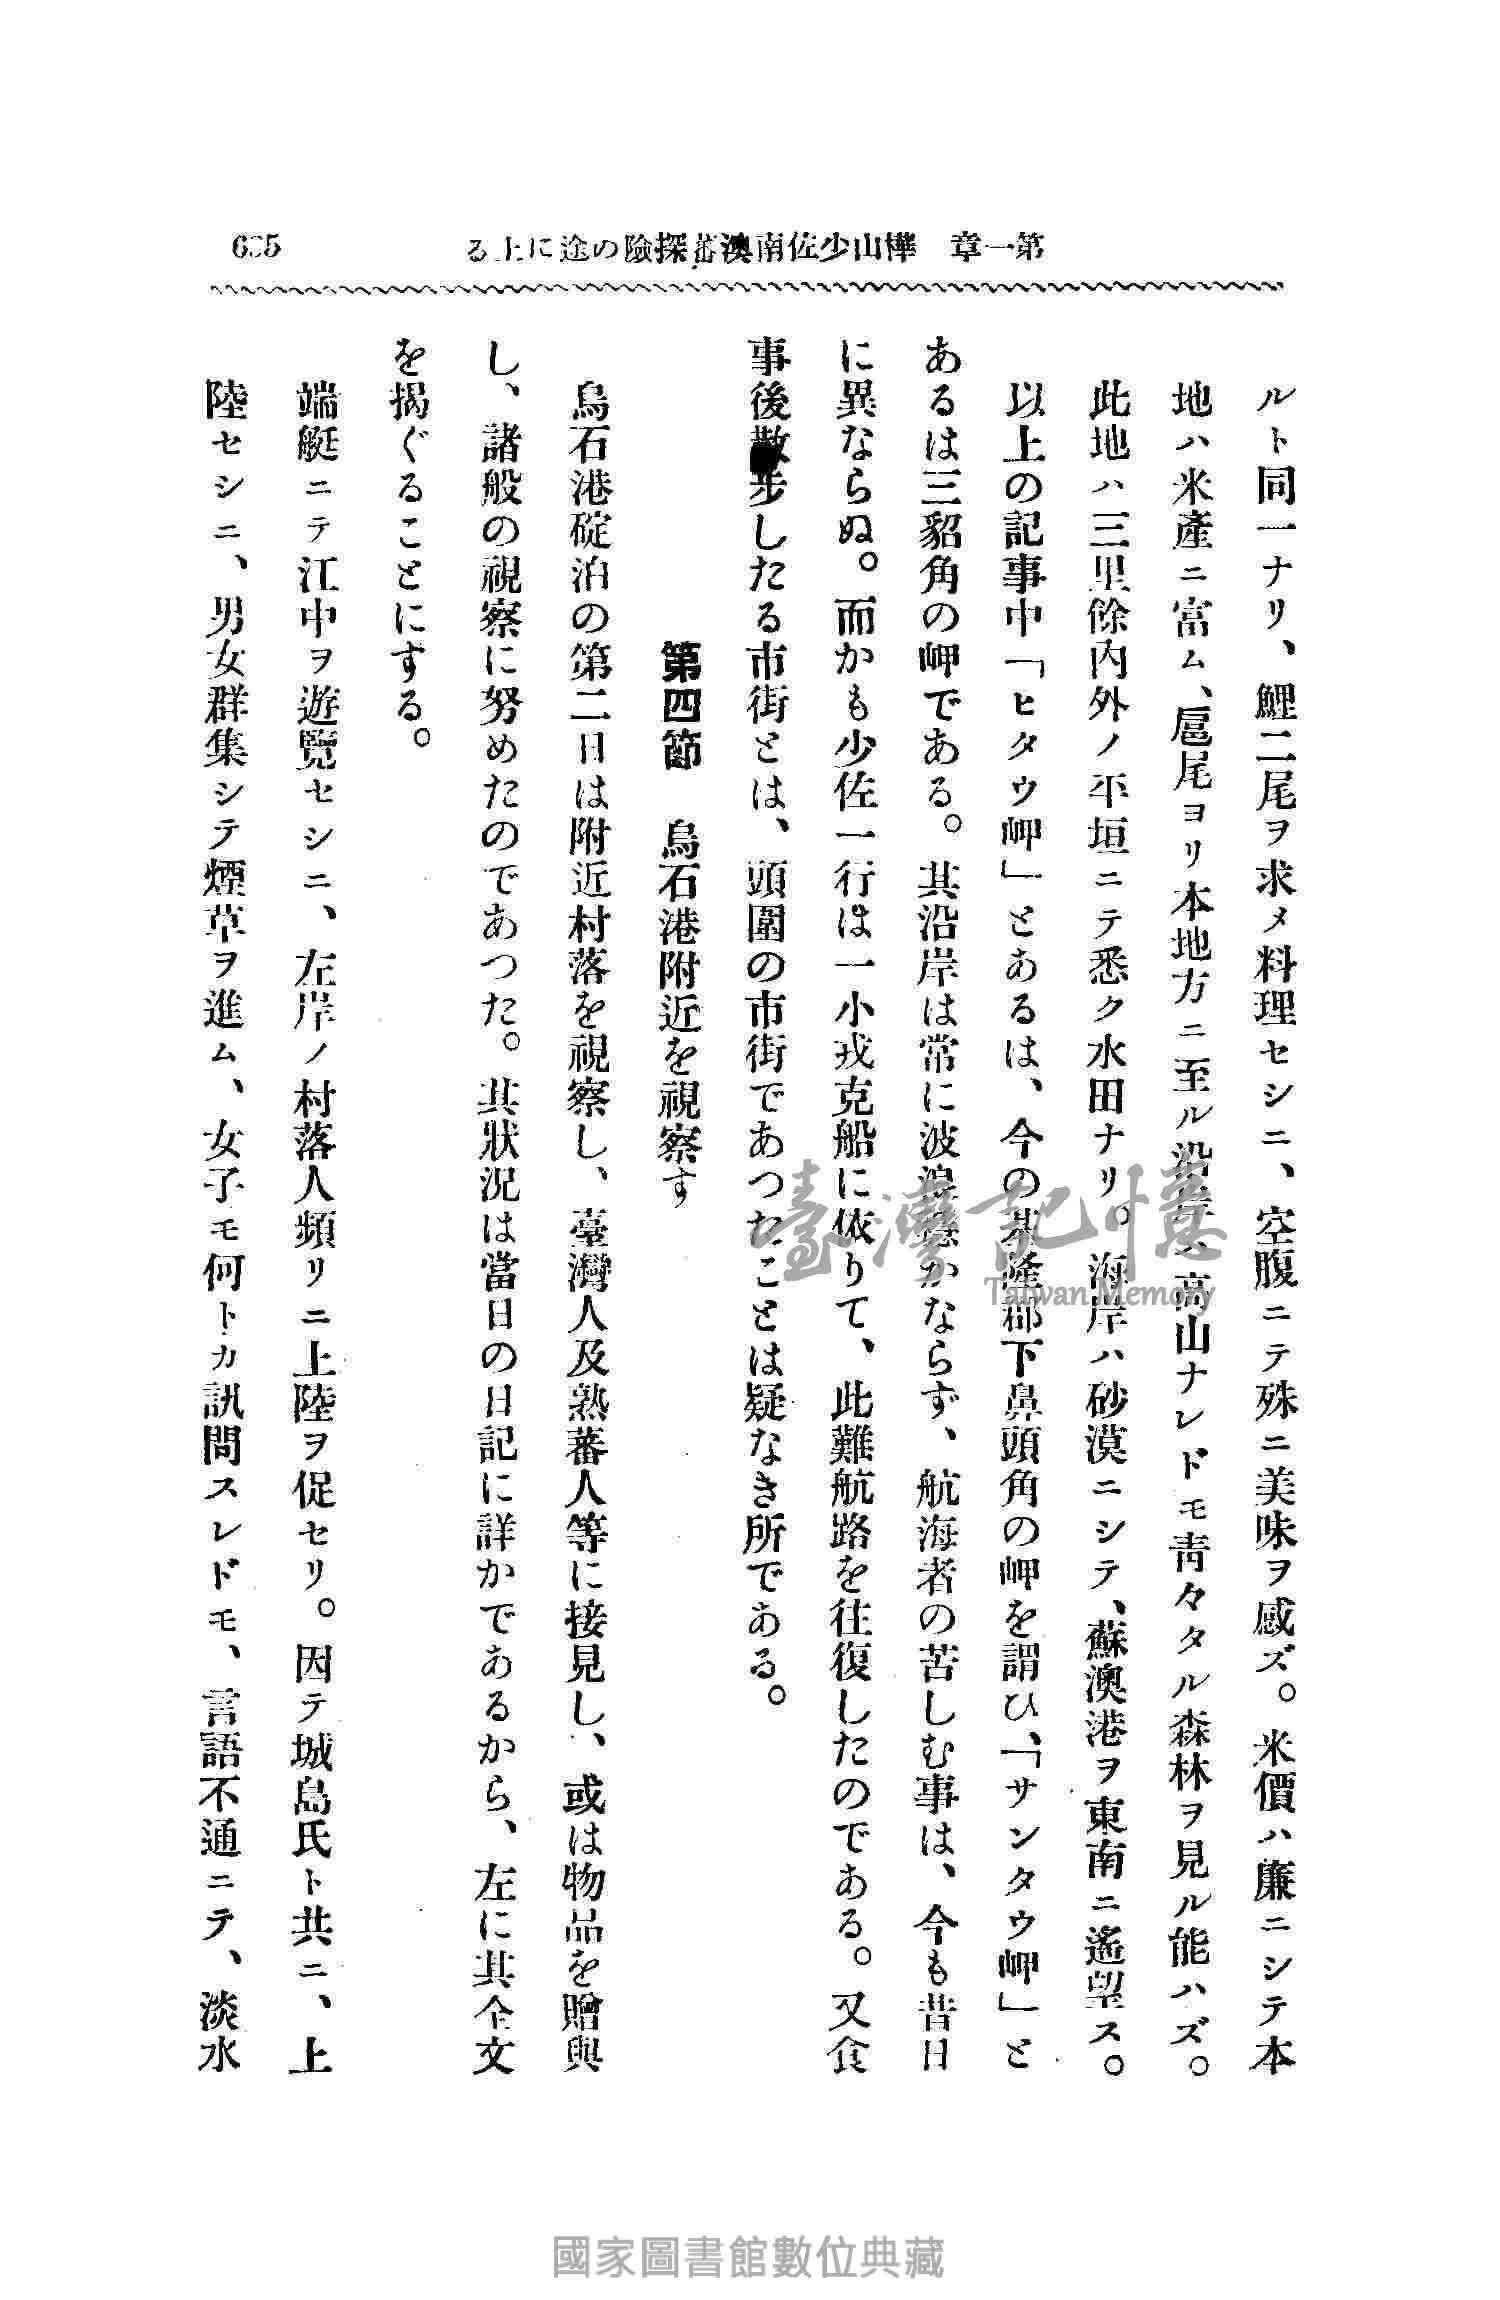 第一章　樺山少佐南澳蕃探險の途に上る
ルト同一ナリ、鯉二尾ヲ求メ料理セシニ、空腹ニテ殊ニ美味ヲ感ズ。米價ハ廉ニシテ本
地ハ米產ニ富ム、扈尾ヨリ本地方ニ至ル沿岸ハ高山ナレドモ靑々タル森林ヲ見ル能ハズ。
此地ハ三里餘內外ノ平垣ニテ悉ク水田ナリ。海岸ハ砂漠ニシテ、蘇澳港ヲ東南ニ遙望ス。
以上の記事中「ヒタウ岬」とあるは、今の基隆郡下鼻頭角の岬を謂ひ、「サンタウ岬」と
あるは三貂角の岬である。其沿岸は常に波浪穩かならず、航海者の苦しむ事は、今も昔日
に異ならぬ。而かも少佐一行は一小戎克船に依りて、此難航路を往復したのである。又食
事後散步したる市街とは、頭圍の市街であつたことは疑なき所である。
第四節　烏石港附近を視察す
烏石港碇泊の第二日は附近村落を視察し、臺灣人及熟蕃人等に接見し、或は物品を贈與
し、諸般の視察に努めたのであつた。其狀況は當日の日記に詳かであるから、左に其全文
を揭ぐることにする。
端艇ニテ江中ヲ遊覽セシニ、左岸ノ村落人頻リニ上陸ヲ促セリ。因テ城島氏ト共ニ、上
陸セシニ、男女群集シテ煙草ヲ進ム、女子モ何トカ訊問スレドモ、言語不通ニテ、淡水
臺灣記憶
Taiwan Memory
國家圖書館數位典藏